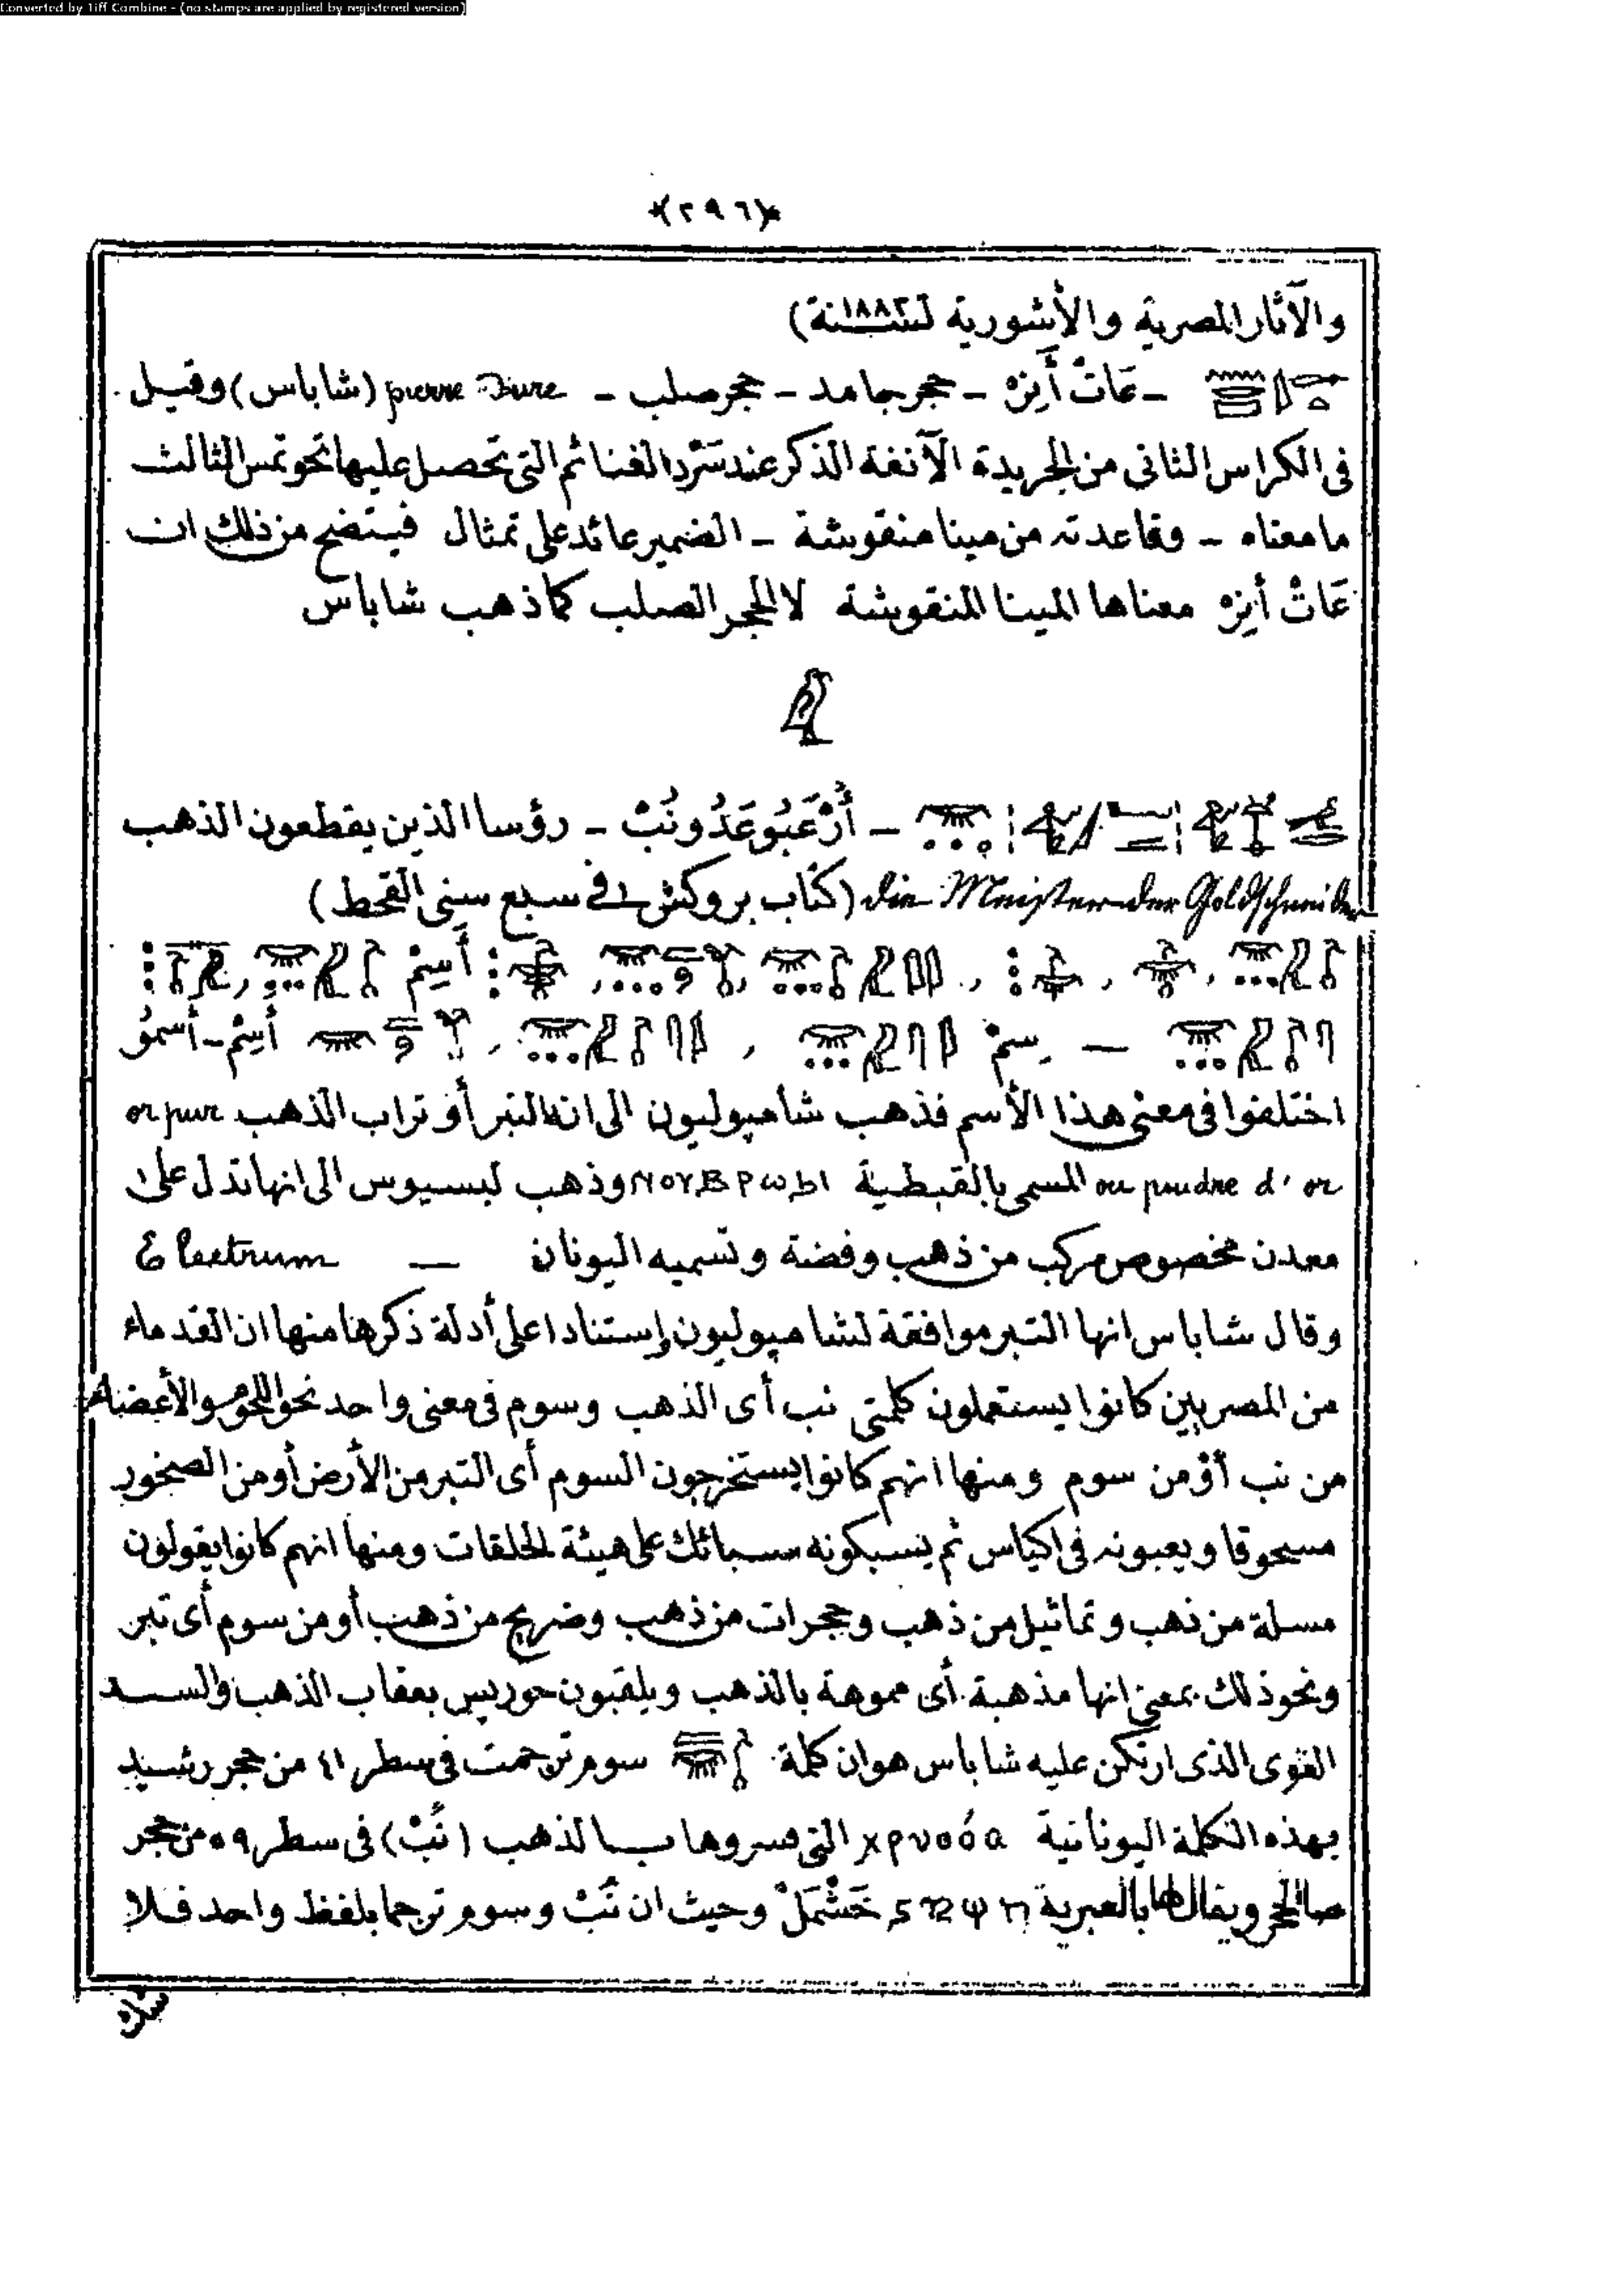 Converted by Tiff Combine - (no stamps are applied by registered version)
*(٢٩٦)*
والآثار المصرية والأشورية لسنة ١٨٨٢)
ـ عَاتْ أَنِزه ـ حجر جامد ـ حجر صلب ـ pierre Dure (شاباس) وقيل
فى الكراس الثانى من الجريدة الآنفة الذكر عند سَرْد الغنائم التى تحصل عليها تحوتمس الثالث
ما معناه ـ وقاعدته من مينا منقوشة ـ الضمير عائد على تمثال فيتضح من ذلك ان
عَاتْ أنِزه معناها المينا المنقوشة لا الحجر الصلب كما ذهب شاباس
ـ أُرْعَبُوعَدُونُبْ ـ رؤسا الذين يقطعون الذهب
die Meister der Goldschneider (كتاب بروكش فى سبع سنى القحط)
أَسِمْ
ـ سِمْ أَسِمْ ـ أسمُو
اختلفوا فى معنى هذا الأسم فذهب شامپوليون الى انه التبر أو تراب الذهب or pur
ou poudre d'or المسمى بالقبطية وذهب لبسيوس الى انها تدل على
معدن مخصوص مركب من ذهب وفضة وتسميه اليونان — Electrum
وقال شاباس انها التبر موافقة لشامپوليون وإستنادا على أدلة ذكرها منها ان القدماء
من المصريين كانوا يستعملون كلمتى نب أى الذهب وسوم فى معنى واحد نحو اللحوم والأعضاء
من نب أوْ من سوم ومنها انهم كانوا يستخرجون السوم أى التبر من الأرض أو من الصخور
مسحوقا ويعبونه فى اكياس ثم يسبكونه سبائك على هيئة الحلقات ومنها انهم كانوا يقولون
مسلة من ذهب وتماثيل من ذهب وحجرات من ذهب وضريح من ذهب أو من سوم أى تبر
ونحو ذلك بمعنى انها مذهبة أى مموهة بالذهب ويلقبون حوريس بعقاب الذهب والسند
القوى الذى ارتكن عليه شاباس هو ان كلمة سوم ترجمت فى سطر ٤١ من حجر رشيد
بهذه الكلمة اليونانية χρυσόα التى فسروها بالذهب (نُبْ) فى سطر ٥٩ من حجر
صا الحجر ويقال لها بالعبرية خَشْمَلْ وحيث ان نُبْ وسوم ترجما بلفظ واحد فلا